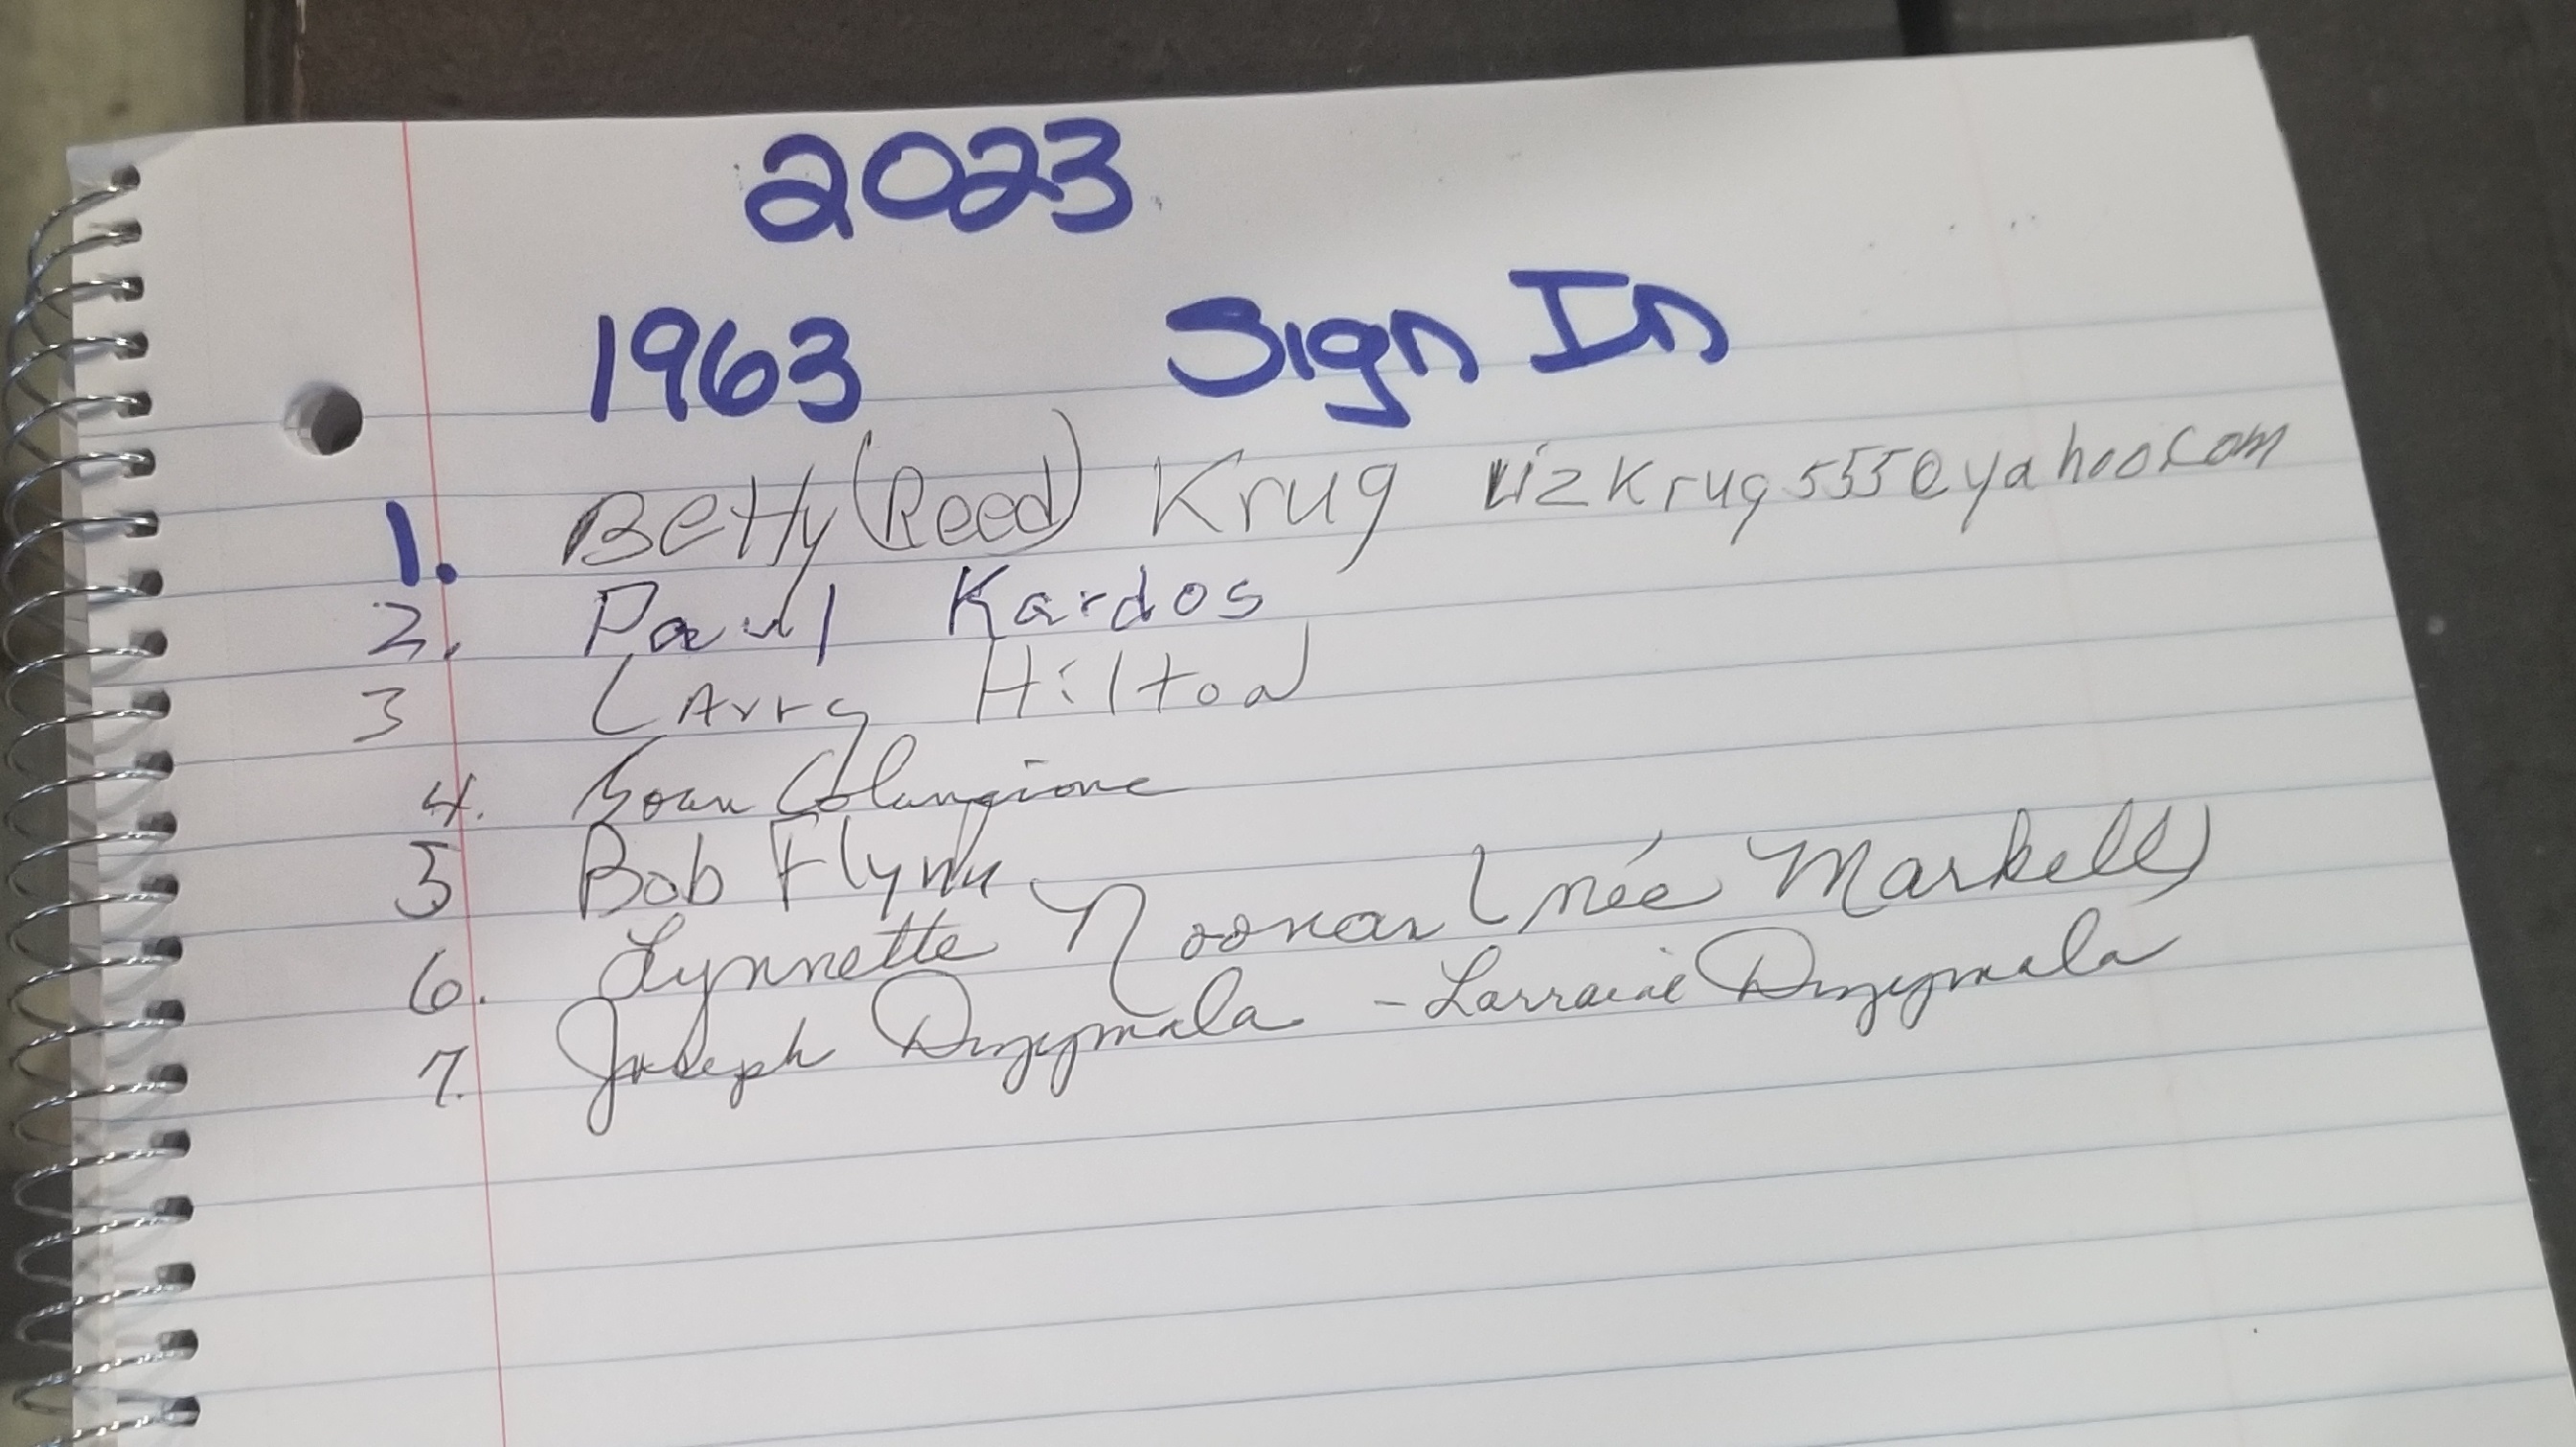 2023
1963 Sign In
1. Betty (Reed) Krug lizkrug555@yahoo.com
2. Paul Kardos
3 Larry Hilton
4. Joan Colangione
5 Bob Flynn
6. Lynnette Noonan (née Markell)
7. Joseph Dzugmala - Lorraine Dzugmala